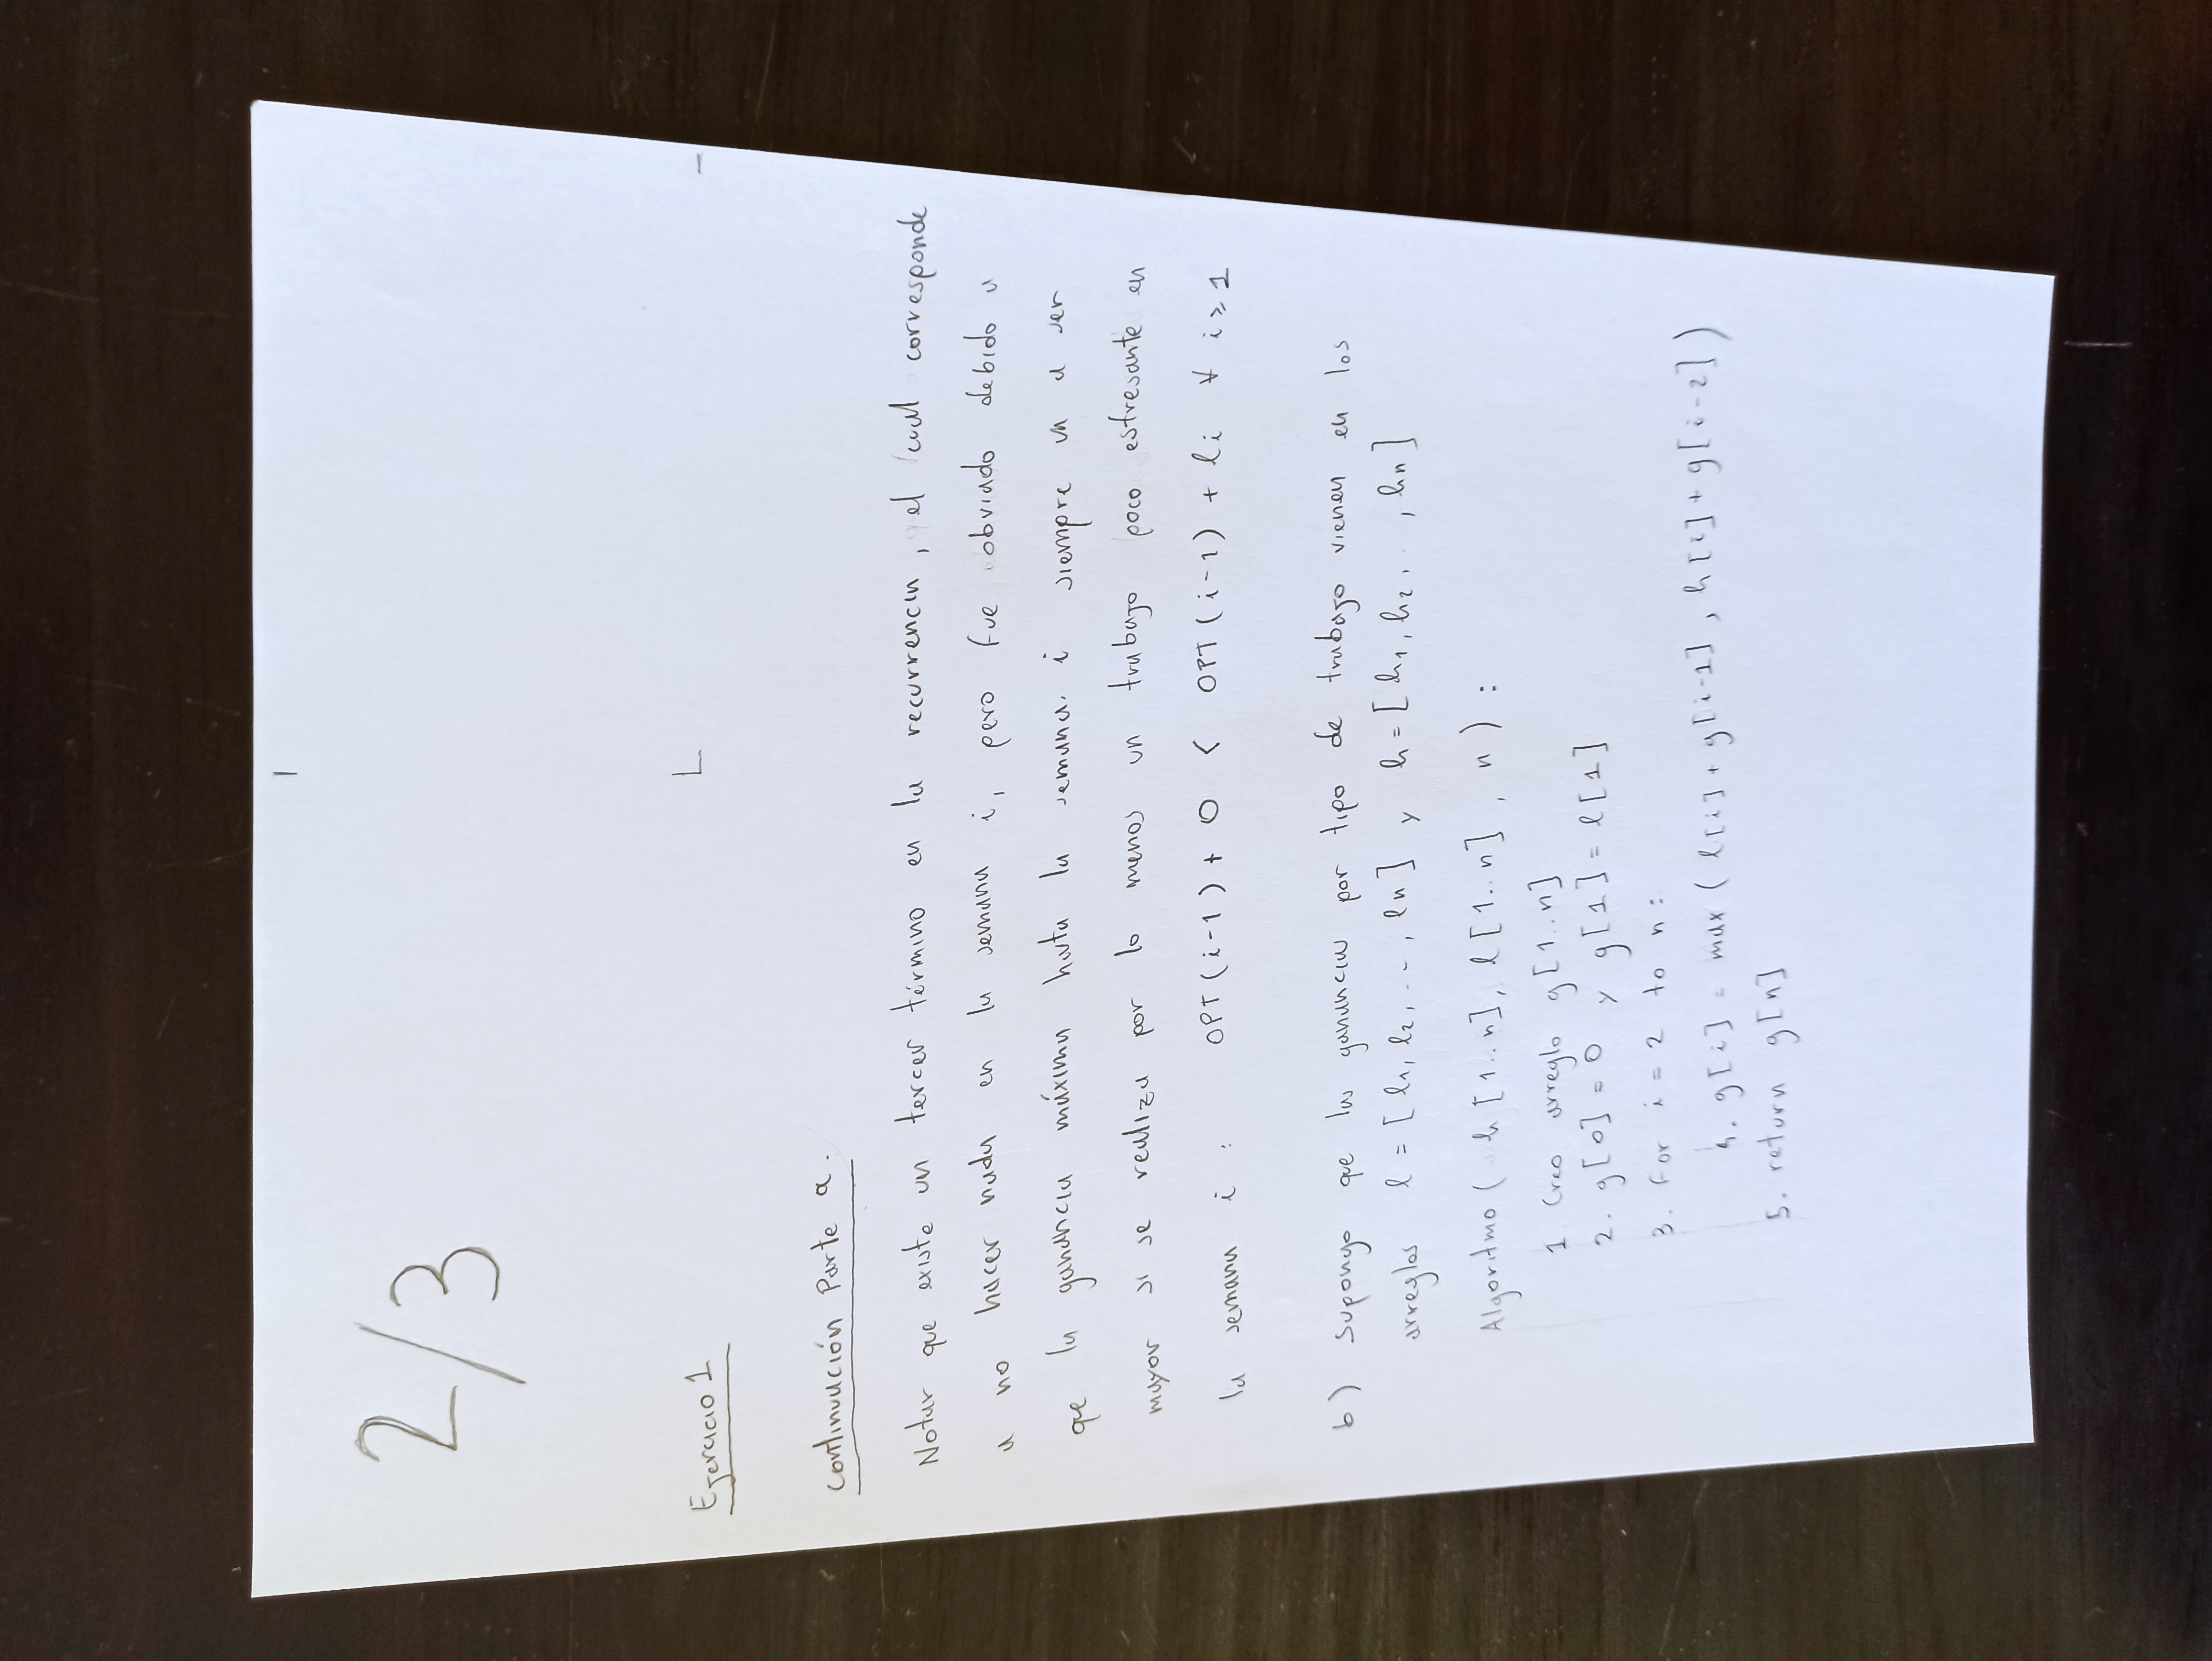 2/3
Ejercicio 1
Continuación Parte a.
Notar que existe un tercer término en la recurrencia, el cual corresponde
a no hacer nada en la semana i, pero fue obviado debido a
que la ganancia máxima hasta la semana i siempre va a ser
mayor si se realiza por lo menos un trabajo poco estresante en
la semana i : OPT(i-1) + 0 < OPT(i-1) + li ∀ i ≥ 1
b) Supongo que las ganancias por tipo de trabajo vienen en los
arreglos l = [l1, l2, .., ln] y h = [h1, h2, .., hn]
Algoritmo (h[1..n], l[1..n], n) :
1. Creo arreglo g[1..n]
2. g[0] = 0 y g[1] = l[1]
3. For i = 2 to n:
4. g[i] = max (l[i] + g[i-1], h[i] + g[i-2])
5. return g[n]